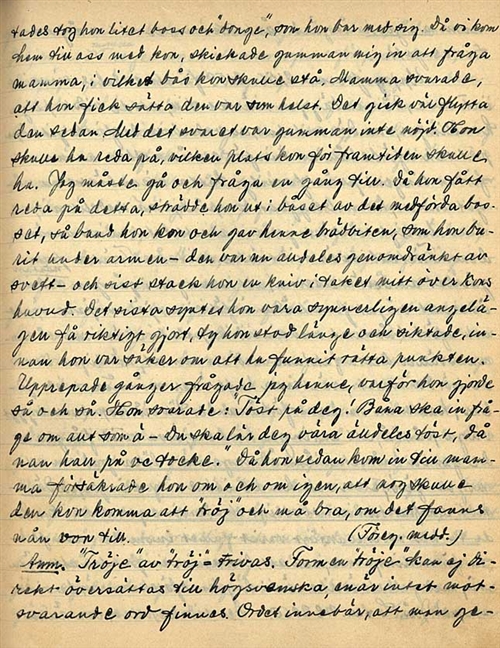 tades tog hon litet boss och "donge", som hon bar med sig. Då vi kom
hem till oss med kon, skickade gumman mig in att fråga
mamma, i vilket bås kon skulle stå. Mamma svarade,
att hon fick sätta den var som helst. Det gick väl flytta
den sedan. Med det svaret var gumman inte nöjd. Hon
skulle ha reda på, vilken plats kon för framtiden skulle
ha. Jag måste gå och fråga en gång till. Då hon fått
reda på detta, strödde hon ut i båset av det medförda bos-
set, så band hon kon och gav henne brödbiten, som hon bu-
rit under armen - den var nu alldeles genomdränkt av
svett - och sist stack hon en kniv i taket mitt över kons
huvud. Det sista syntes hon vara synnerligen angelä-
gen få riktigt gjort, ty hon stod länge och siktade, in-
nan hon var säker om att ha funnit rätta punkten.
Upprepade gånger frågade jag henne, varför hon gjorde
så och så. Hon svarade: "Töst på deg! Bana ska in frå-
ge om aut som ä - Du ska lär deg vära äudeles töst, då
nan hall på ve tocke." Då hon sedan kom in till mam-
ma försäkrade hon om och om igen, att nog skulle
den kon komma att "tröj" och må bra, om det fanns
nån von till. (Föreg. medd.)
Anm. "Tröje" av "tröj" = trivas. Formen "tröje" kan ej di-
rekt översättas till högsvenska, enär intet mot-
svarande ord finnes. Ordet innebär, att man ge-